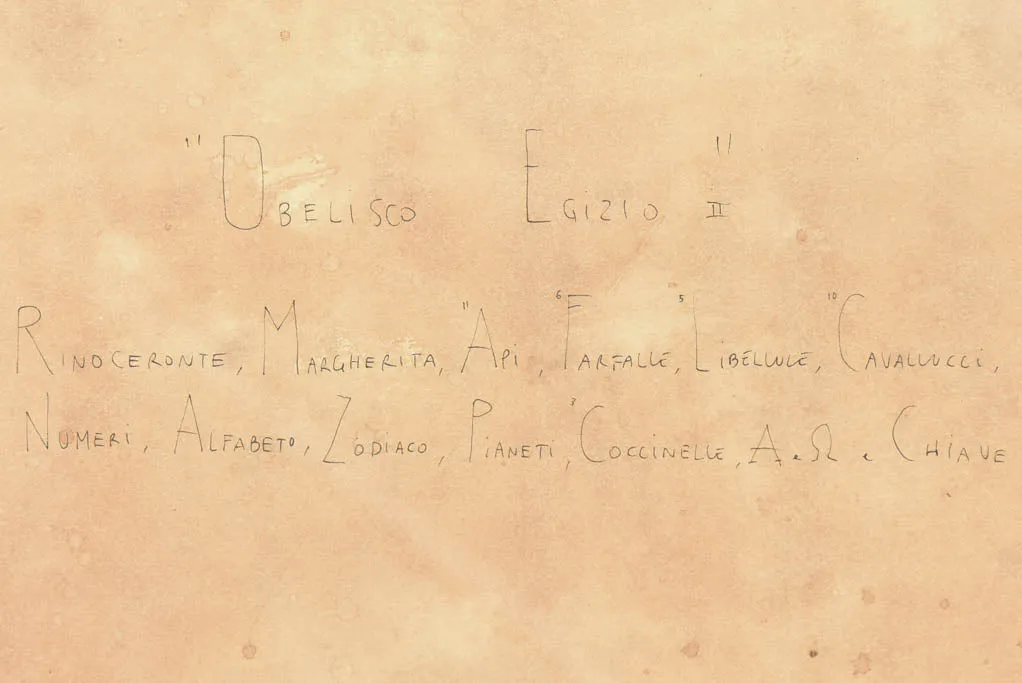 "Obelisco Egizio II"
Rinoceronte, Margherita, 11 Api, 6 Farfalle, 5 Libellule, 10 Cavallucci,
Numeri, Alfabeto, Zodiaco, Pianeti, 3 Coccinelle, A e Ω e Chiave